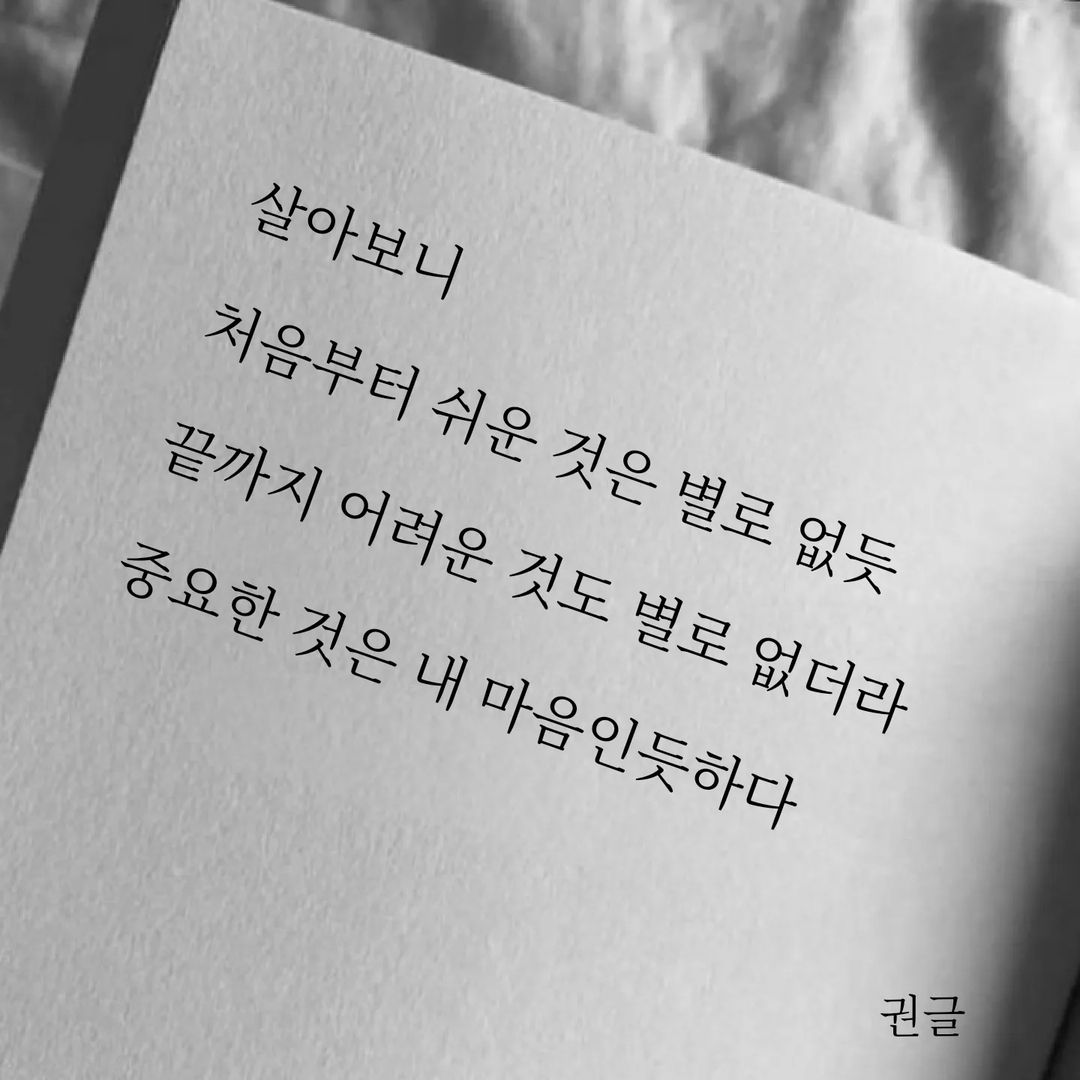 살아보니
처음부터 쉬운 것은 별로 없듯
끝까지 어려운 것도 별로 없더라
중요한 것은 내 마음인듯하다
권글